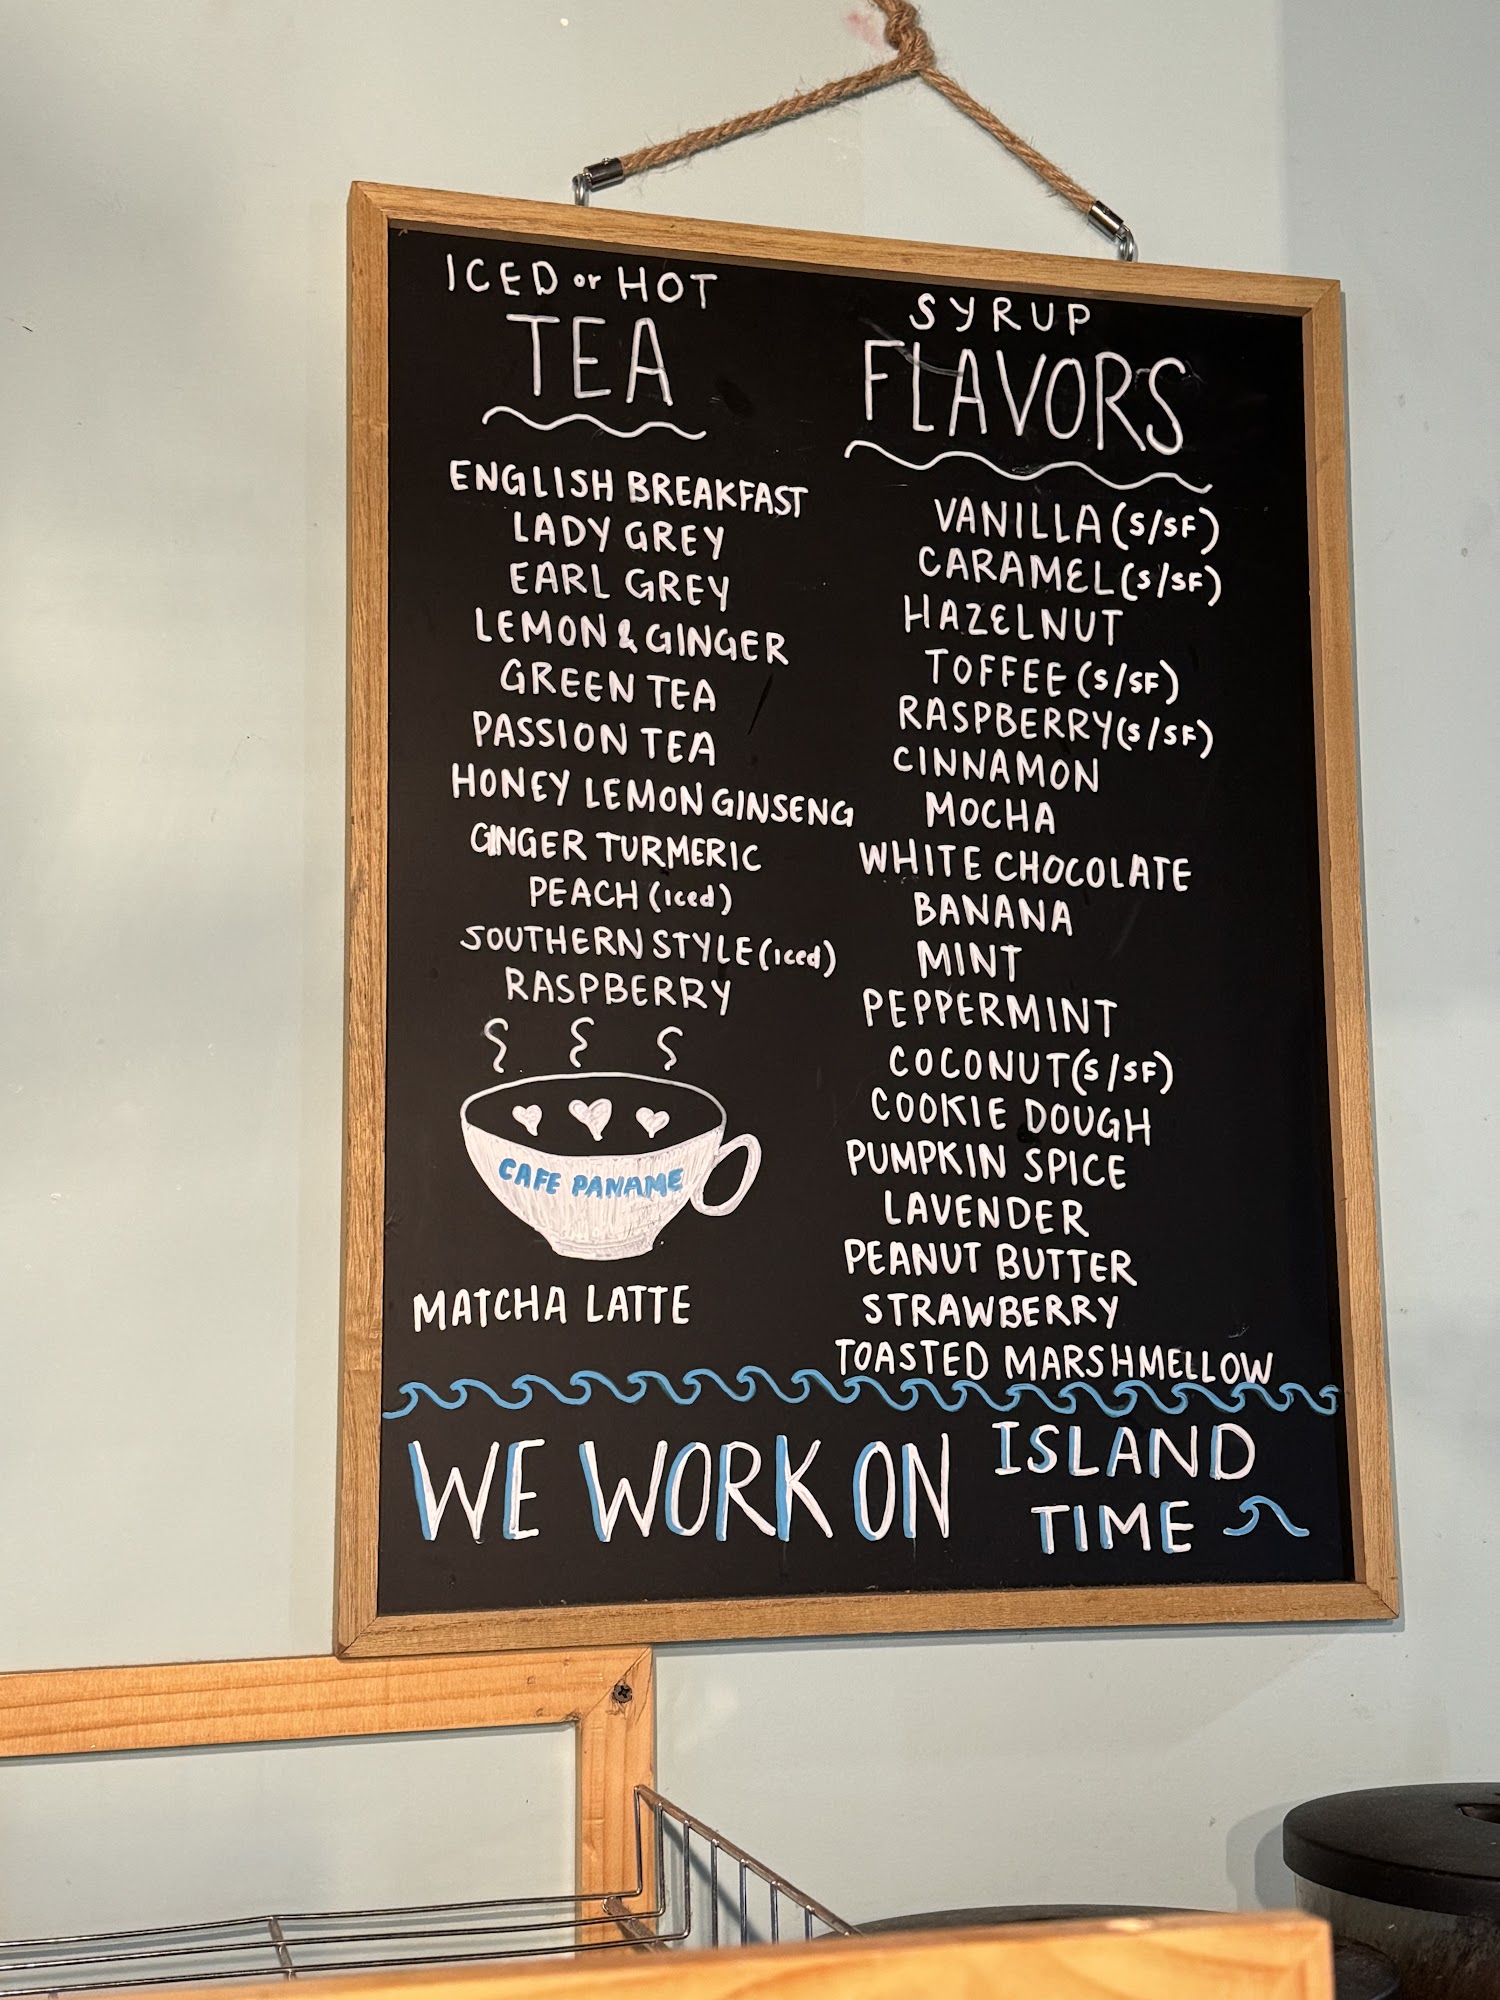 ICED or HOT
TEA
ENGLISH BREAKFAST
LADY GREY
EARL GREY
LEMON & GINGER
GREEN TEA
PASSION TEA
HONEY LEMON GINSENG
GINGER TURMERIC
PEACH (iced)
SOUTHERN STYLE (iced)
RASPBERRY
CAFE PANAME
MATCHA LATTE
SYRUP
FLAVORS
VANILLA (S/SF)
CARAMEL (S/SF)
HAZELNUT
TOFFEE (S/SF)
RASPBERRY (S/SF)
CINNAMON
MOCHA
WHITE CHOCOLATE
BANANA
MINT
PEPPERMINT
COCONUT (S/SF)
COOKIE DOUGH
PUMPKIN SPICE
LAVENDER
PEANUT BUTTER
STRAWBERRY
TOASTED MARSHMELLOW
WE WORK ON ISLAND
TIME